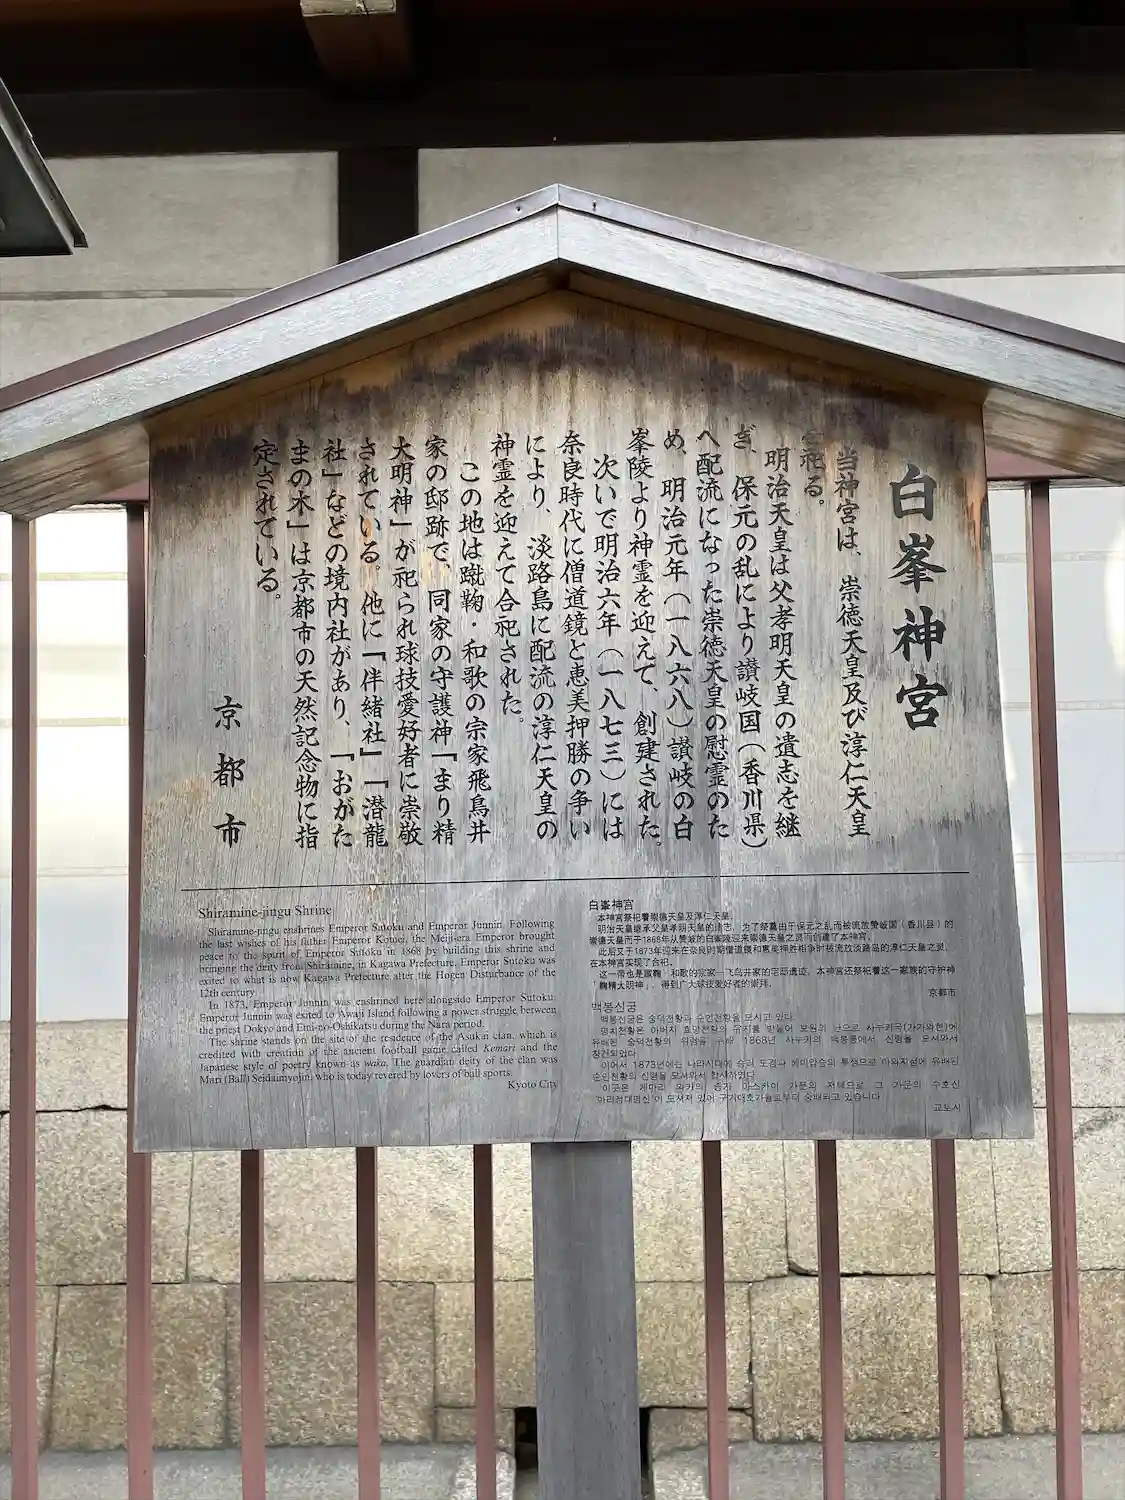 白峯神宮
当神宮は、崇徳天皇及び淳仁天皇
を祀る。
明治天皇は父孝明天皇の遺志を継
ぎ、保元の乱により讃岐国（香川県）
へ配流になった崇徳天皇の慰霊のた
め、明治元年（一八六八）讃岐の白
峯陵より神霊を迎えて、創建された。
次いで明治六年（一八七三）には
奈良時代に僧道鏡と恵美押勝の争い
により、淡路島に配流の淳仁天皇の
神霊を迎えて合祀された。
この地は蹴鞠・和歌の宗家飛鳥井
家の邸跡で、同家の守護神「まり精
大明神」が祀られ球技愛好者に崇敬
されている。他に「伴緒社」「潜龍
社」などの境内社があり、「おがた
まの木」は京都市の天然記念物に指
定されている。
京都市
Shiramine-jingu Shrine
Shiramine-jingu enshrines Emperor Sutoku and Emperor Junnin. Following
the last wishes of his father Emperor Komei, the Meiji-era Emperor brought
peace to the spirit of Emperor Sutoku in 1868 by building this shrine and
bringing the deity from Shiramine, in Kagawa Prefecture. Emperor Sutoku was
exiled to what is now Kagawa Prefecture after the Hogen Disturbance of the
12th century.
In 1873, Emperor Junnin was enshrined here alongside Emperor Sutoku.
Emperor Junnin was exiled to Awaji Island following a power struggle between
the priest Dokyo and Emi-no-Oshikatsu during the Nara period.
The shrine stands on the site of the residence of the Asukai clan, which is
credited with creation of the ancient football game called Kemari and the
Japanese style of poetry known as waka. The guardian deity of the clan was
Mari (Ball) Seidaimyojin, who is today revered by lovers of ball sports.
Kyoto City
白峯神宫
本神宫祭祀着崇德天皇及淳仁天皇。
明治天皇继承父皇孝明天皇的遗志，为了祭慕由于保元之乱而被流放赞岐国（香川县）的
崇德天皇而于1868年从赞岐的白峯陵迎来崇德天皇之灵而创建了本神宫。
此后又于1873年迎来在奈良时期僧道镜和惠美押胜相争时被流放淡路岛的淳仁天皇之灵，
在本神宫实现了合祀。
这一带也是蹴鞠、和歌的宗家—飞鸟井家的宅邸遗迹，本神宫还祭祀着这一家族的守护神
「鞠精大明神」，得到广大球技爱好者的崇拜。
京都市
백봉신궁
백봉신궁은 숭덕천황과 순인천황을 모시고 있다.
명치천황은 아버지 효명천황의 유지를 받들어 보원의 난으로 사누키국(가가와현)에
유배된 숭덕천황의 위령을 위해 1868년 사누키의 백봉릉에서 신령을 모셔와서
창건되었다.
이어서 1873년에는 나라시대에 승려 도경과 에미압승의 투쟁으로 아와지섬에 유배된
순인천황의 신령을 모셔와서 합사하였다.
이곳은 게마리 와카의 종가 아스카이 가문의 저택으로 그 가문의 수호신
'마리정대명신'이 모셔져 있어 구기애호가들로부터 숭배되고 있습니다.
교토시